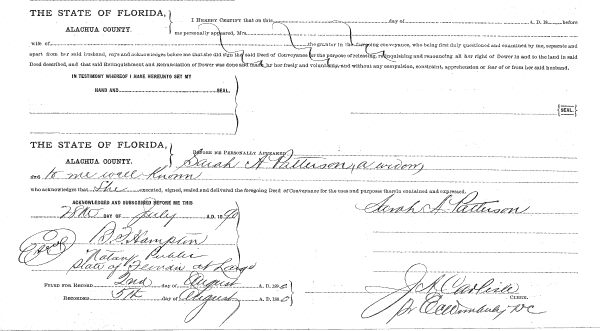 THE STATE OF FLORIDA,
ALACHUA COUNTY.
I HEREBY CERTIFY that on this day of A. D. 18 before
me personally appeared, Mrs.
wife of the grantor in the foregoing conveyance, who being first duly questioned and examined by me, separate and
apart from her said husband, says and acknowledges before me that she did sign the said Deed of Conveyance for the purpose of releasing, relinquishing and renouncing all her right of Dower in and to the land in said
Deed described, and that said Relinquishment and Renunciation of Dower was done and made by her freely and voluntarily, and without any compulsion, constraint, apprehension or fear of or from her said husband.
IN TESTIMONY WHEREOF I MAKE HEREUNTO SET MY
HAND AND SEAL.
{SEAL.
THE STATE OF FLORIDA,
ALACHUA COUNTY.
BEFORE ME PERSONALLY APPEARED
Sarah A Patterson, a widow
and to me well Known
who acknowledges that She executed, signed, sealed and delivered the foregoing Deed of Conveyance for the uses and purposes therein contained and expressed.
ACKNOWLEDGED AND SUBSCRIBED BEFORE ME THIS
28th DAY OF July A. D. 1890
Sarah A Patterson
B. F. Hampton
Notary Public
State of Florida at Large
FILED FOR RECORD 2nd day of August A. D. 1890
RECORDED 5th day of August A. D. 1890
J. A. Carlisle
CLERK.
Pr DC